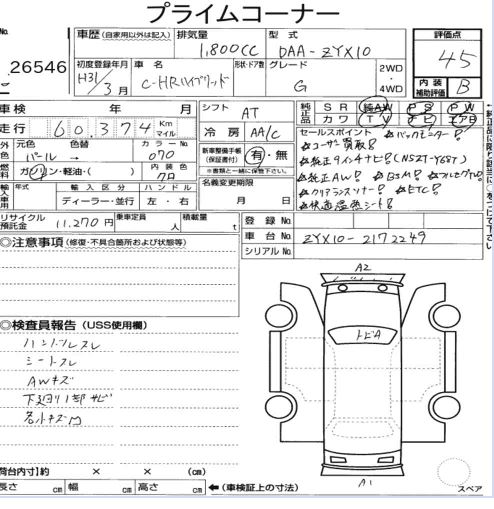 プライムコーナー
No.
26546
車歴 (自家用以外は記入)
排気量
1,800CC
型式
DAA-ZYX10
評価点
45
初度登録年月
H31/3月
車名
C-HRハイブリッド
形状・ドア数
グレード
G
2WD・4WD
内装補助評価
B
車検 年 月
走行 60,374 Km マイル
シフト
AT
純正品
SR AW PS PW
カワ TV ナビ エアB
外色
元色
パール
色替
→
カラーNo
070
冷房
AA/C
セールスポイント
☆バックモニター!
☆ユーザー買取!
☆純正ラインナビ!(NSZT-Y68T)
☆純正AW! ☆BSM! ☆フルセグTV!
☆クリアランスソナー! ☆ETC!
☆快適温熱シート!
燃料
ガソリン・軽油・( )
内装色
クロ
新車整備手帳(保証書付)
有・無
※書類と一緒に保管下さい。
輸入車用
輸入区分
ディーラー・並行
ハンドル
左・右
名義変更期限
月 日
リサイクル預託金
11,270円
乗車定員
人
積載量
t
登録No
車台No
ZYX10-2172249
シリアルNo
◎注意事項 (修復・不具合箇所および状態等)
◎検査員報告 (USS使用欄)
ハンドルスレ
シートスレ
AWキズ
下廻り1部サビ
各小キズ凹
A2
トビA
A1
スペア
荷台内寸)約 × × (cm)
長さ cm 幅 cm 高さ cm ←(車検証上の寸法)